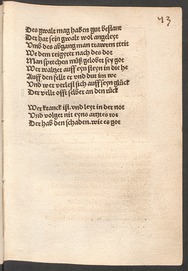 43
Des gwalt mag haben gut bestant
Der hat sein gwalt wol angeleyt
Vnd des abgang man trawren treit
We dem regyrer nach des dot
Man sprechen müß gelobet sey got
Wer waltzet auff eyn steyn in die he
Auff den fellt er vnd dut im we
Vnd wer verleßt sich auff seyn glück
Der vellt offt selber an den rück
Wer kranck ist. vnd leyt in der not
Vnd volget nit eyns artzes rot
Der hab den schaden. wie es got